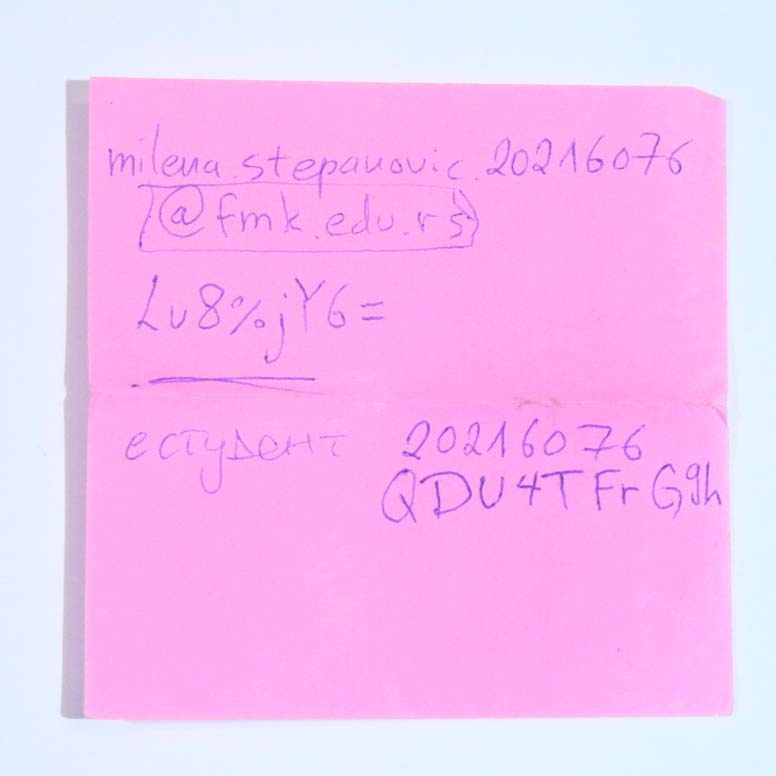 milena.stepanovic.20216076
@fmk.edu.rs
Lu8%jY6=
естудент 20216076
QDU4TFrG9h